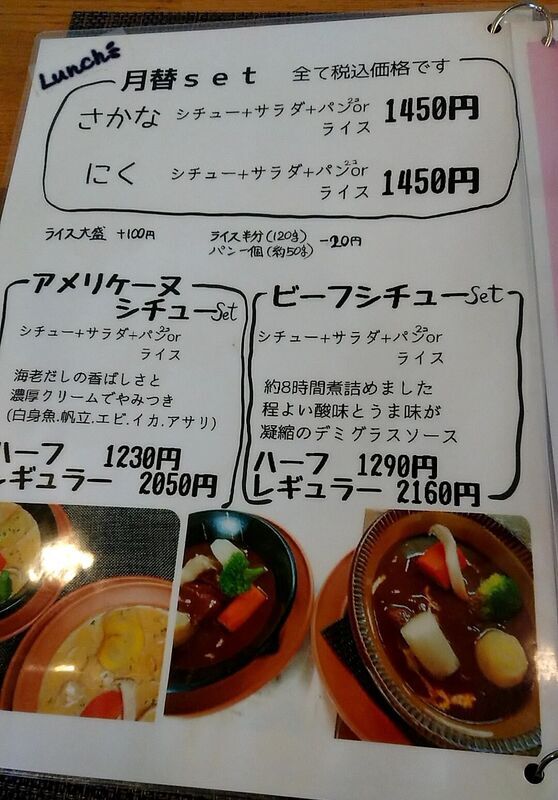 Lunch
月替set 全て税込価格です
さかな シチュー+サラダ+パン2コor
ライス 1450円
にく シチュー+サラダ+パン2コor
ライス 1450円
ライス大盛 +100円
ライス半分(120g)
パン一個(約50g) -20円
アメリケーヌ
シチューSet
シチュー+サラダ+パン2コor
ライス
海老だしの香ばしさと
濃厚クリームでやみつき
(白身魚.帆立.エビ.イカ.アサリ)
ハーフ 1230円
レギュラー 2050円
ビーフシチューSet
シチュー+サラダ+パン2コor
ライス
約8時間煮詰めました
程よい酸味とうま味が
凝縮のデミグラスソース
ハーフ 1290円
レギュラー 2160円